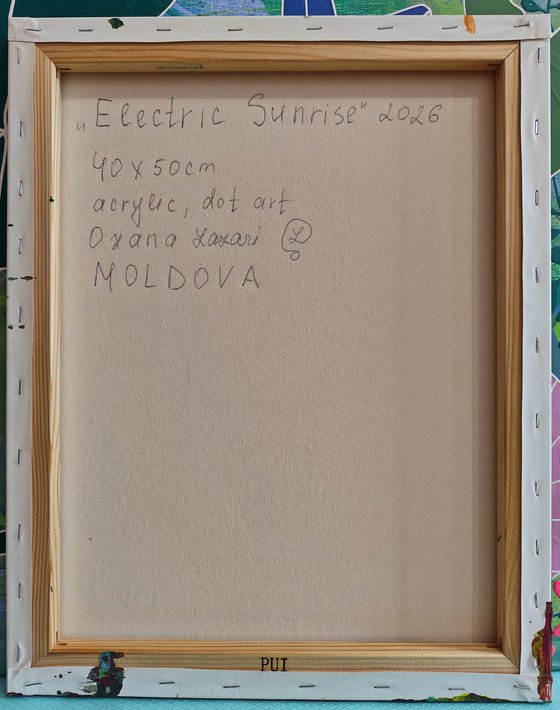 „Electric Sunrise" 2026
40x50cm
acrylic, dot art
Oxana Lazari L
MOLDOVA
PUI